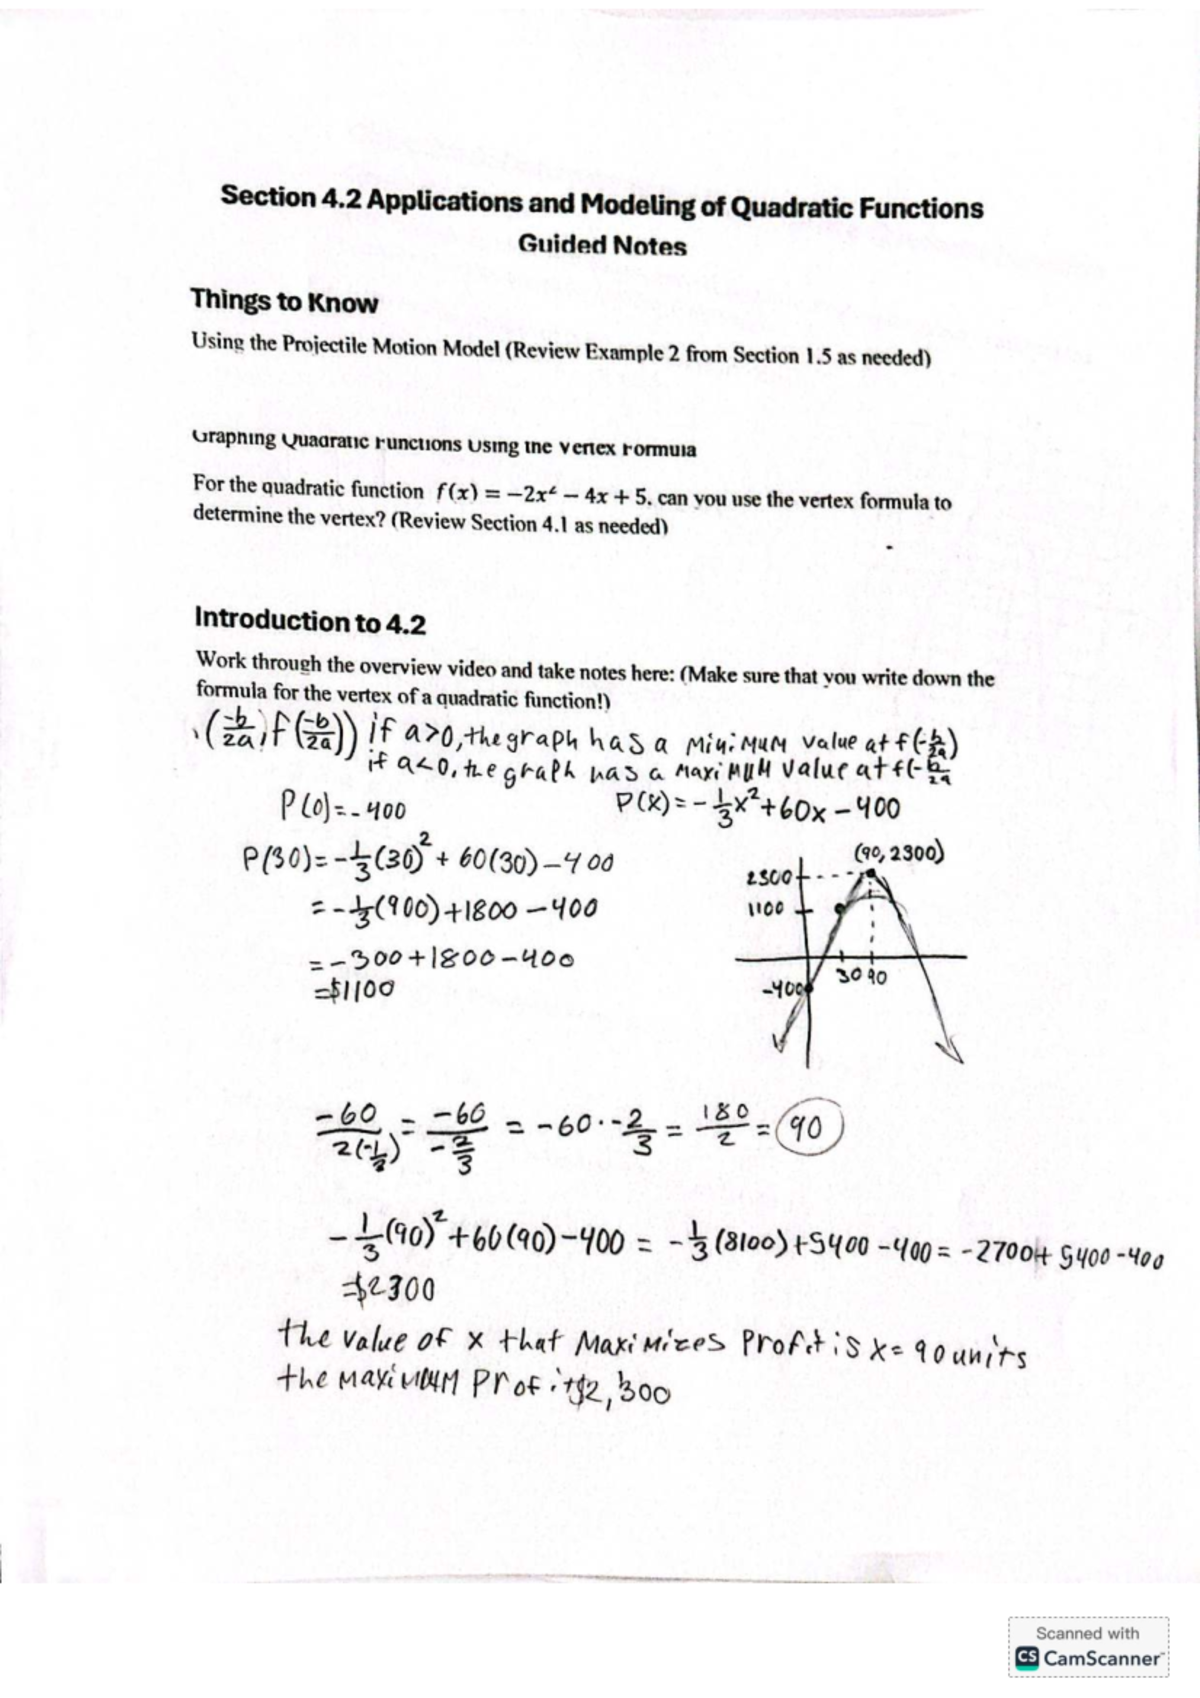 Section 4.2 Applications and Modeling of Quadratic Functions
Guided Notes
Things to Know
Using the Projectile Motion Model (Review Example 2 from Section 1.5 as needed)
Graphing Quadratic Functions Using the Vertex Formula
For the quadratic function f(x) = −2x² − 4x + 5, can you use the vertex formula to
determine the vertex? (Review Section 4.1 as needed)
Introduction to 4.2
Work through the overview video and take notes here: (Make sure that you write down the
formula for the vertex of a quadratic function!)
(-b/2a, f(-b/2a)) if a>0, the graph has a minimum value at f(-b/2a)
if a<0, the graph has a maximum value at f(-b/2a
P(0)=-400
P(x)=-1/3x²+60x-400
P(30)=-1/3(30)²+60(30)-400
=-1/3(900)+1800-400
=-300+1800-400
=$1100
(90,2300)
2300
1100
30 90
-400
-60/2(-1/3) = -60/-2/3 = -60·-2/3 = 180/2 = 90
-1/3(90)²+60(90)-400 = -1/3(8100)+5400-400 = -2700+5400-400
=$2300
the value of x that Maximizes Profit is x=90 units
the maximum Profit $2,300
Scanned with
CS CamScanner